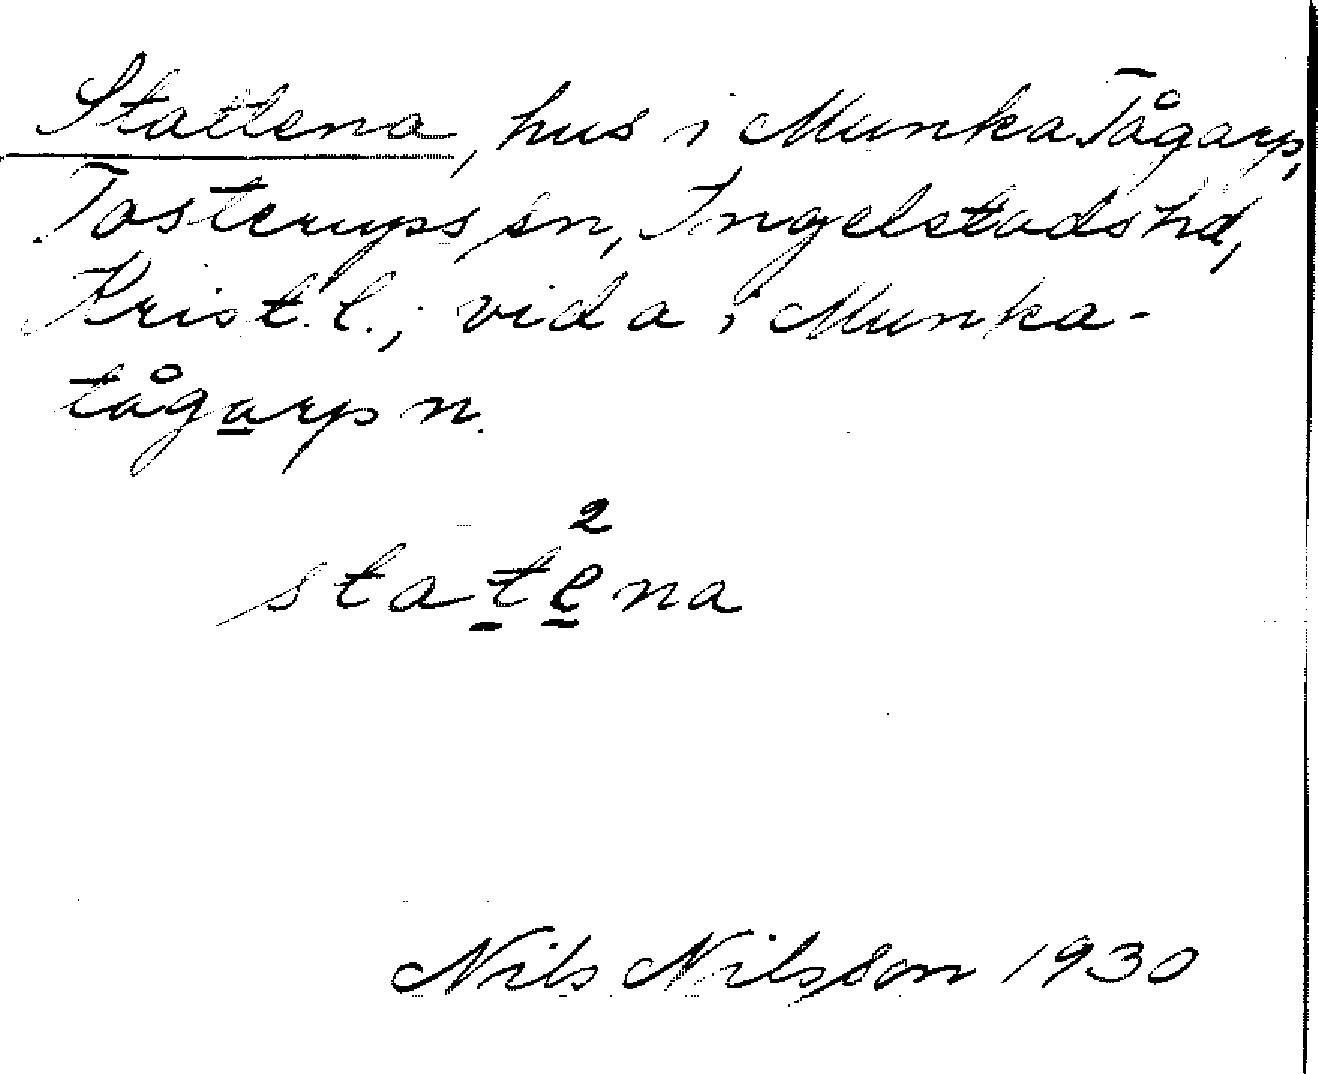 Stattena, hus i Munka Tågarp,
Tosterups sn, Ingelstads hd,
Krist. l.; vid a i Munka-
tågarp n.
2
statena
Nils Nilsson 1930